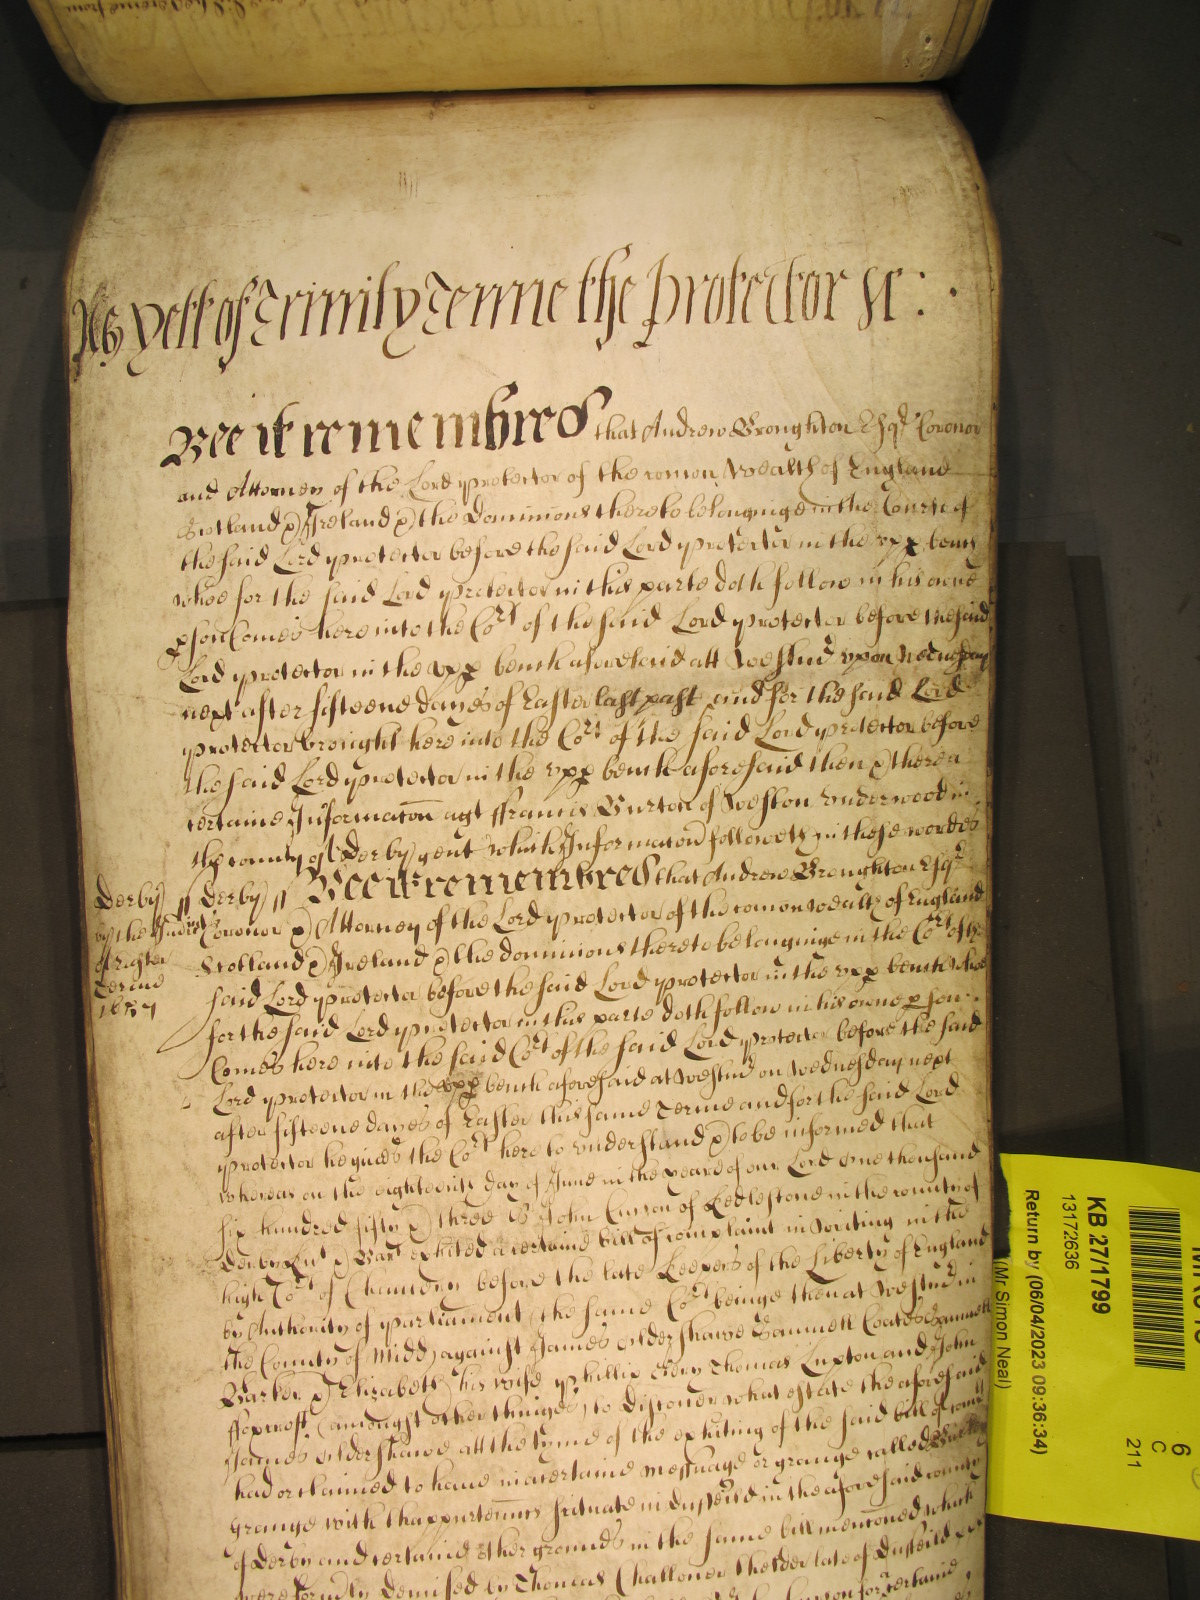 As yett of Trinity Terme the Protector &c:
Bee it remembred that Andrew Broughton Esqr Coronor
and Attorney of the Lord protector of the comon Wealth of England
Scotland & Ireland & the Dominions thereto belonginge in the Courte of
the said Lord protector before the said Lord protector in the upp bench
whoe for the said Lord protector in this parte doth follow in his owne
pson Comes here into the Cort of the said Lord protector before the said
Lord protector in the upp bench aforesaid att Westmr upon Wednesday
next after fifteene dayes of Easter last past and for the said Lord
protector brought here into the Cort of the said Lord protector before
the said Lord protector in the upp bench aforesaid then & there a
certaine Informacon agt ffrancis Burton of Weston Underwood in
the county of Derby gent which Informacon followeth in these wordes
Derby // Derby // Bee it remembred that Andrew Broughton Esqr
by the Coronor & Attorney of the Lord protector of the comon wealth of England
of Easter Scotland & Ireland & the dominions thereto belonginge in the Cort of the
Terme said Lord protector before the said Lord protector in the upp bench whoe
1657 for the said Lord protector in this parte doth follow in his owne pson
Comes here into the said Cort of the said Lord protector before the said
Lord protector in the upp bench aforesaid at Westmr on Wednesday next
after fifteene dayes of Easter this same Terme and for the said Lord
protector he gives the Cort here to understand & to be informed that
whereas on the eighteenth day of June in the yeare of our Lord one thousand
six hundred fifty & three John Curson of Kedlestone in the county of
Derby Knt & Bart exhited a certaine bill of complaint in writing in the
high Cort of Chauncery before the late Keepers of the Liberty of England
by Authority of parliament (the same Cort beinge then at Westmr in
the County of Midd) against James oldershawe Samuell Coates Samuell
Barker & Elizabeth his wife phillip Thomas Lupton and John
ffoxcroft (amongst other thinges) to discover what estate the aforesaid
James oldershawe att the tyme of the exhiting of the said bill of
had or claimed to have in a certaine messuage or grange called
grange with thappurtenncs scituate in Duffeild in the aforesaid county
of Derby and certaine other grounds in the same bill menconed which
were formly demised by Thomas Challoner thelder late of Duffeild
for a certaine
KB 27/1799
13172636
Return by (06/04/2023 09:36:34)
(Mr Simon Neal)
6
C
211